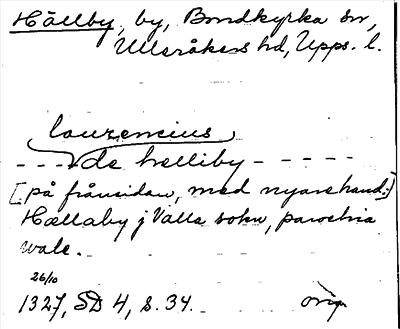 Hällby, by, Bondkyrka sn,
Ulleråkers hd, Upps. l.
laurencius
- - - - de helliby - - - - -
[på frånsidan, med nyare hand:]
Hællaby j Valla sokn, parochia
wale.
26/10
1327, SD 4, s. 34. orig.